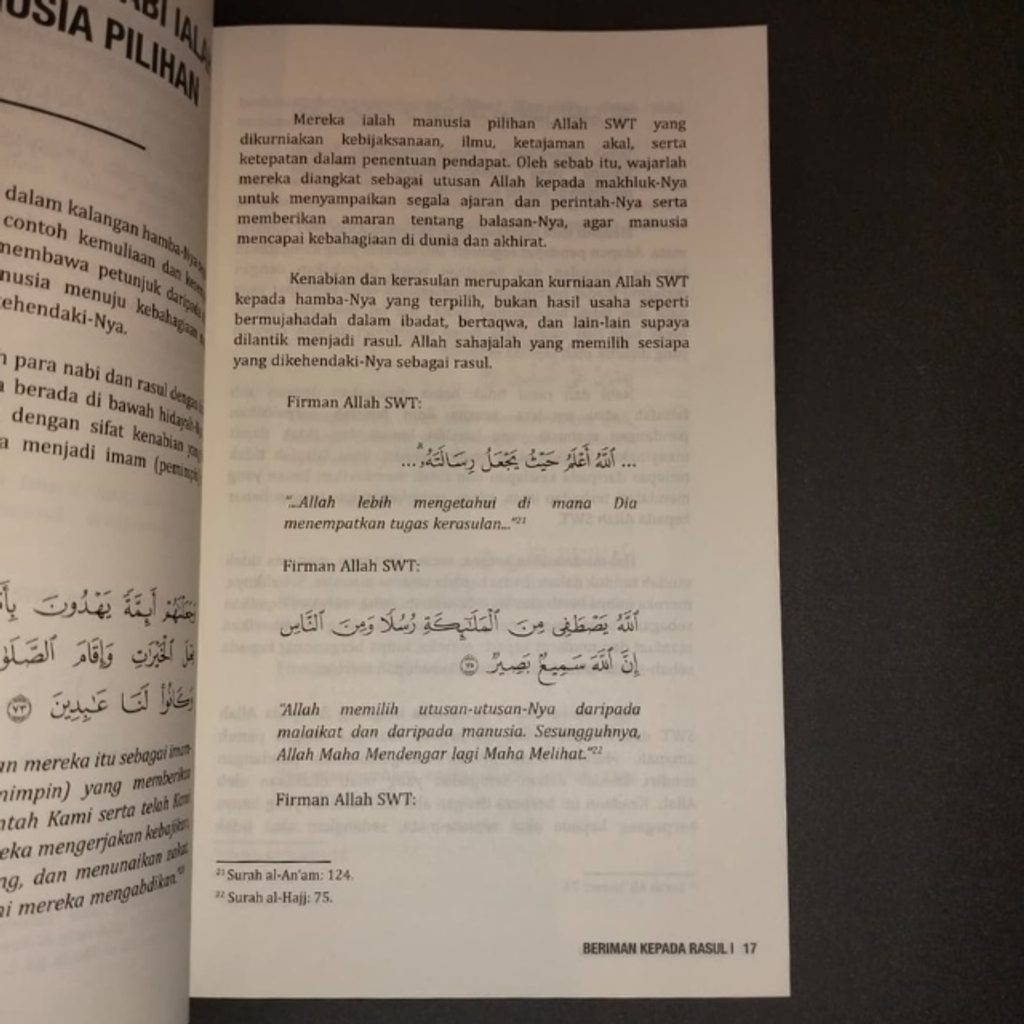 USIA PILIHAN
dalam kalangan hamba-Nya
contoh kemuliaan dan
membawa petunjuk daripada
nusia menuju kebahagiaan
kehendaki-Nya.
para nabi dan rasul dengan
berada di bawah hidayah-
dengan sifat kenabian yang
menjadi imam (pemimpin)
أَئِمَّةً يَهْدُونَ
ٱلْخَيْرَٰتِ وَإِقَامَ
وَكَانُوا۟ لَنَا عَـٰبِدِينَ ٧٣
an mereka itu sebagai imam-
nimpin) yang memberikan
ntah Kami serta telah Kami
eka mengerjakan kebajikan,
ng, dan menunaikan zakat,
mereka mengabdikan."
Mereka ialah manusia pilihan Allah SWT yang
dikurniakan kebijaksanaan, ilmu, ketajaman akal, serta
ketepatan dalam penentuan pendapat. Oleh sebab itu, wajarlah
mereka diangkat sebagai utusan Allah kepada makhluk-Nya
untuk menyampaikan segala ajaran dan perintah-Nya serta
memberikan amaran tentang balasan-Nya, agar manusia
mencapai kebahagiaan di dunia dan akhirat.
Kenabian dan kerasulan merupakan kurniaan Allah SWT
kepada hamba-Nya yang terpilih, bukan hasil usaha seperti
bermujahadah dalam ibadat, bertaqwa, dan lain-lain supaya
dilantik menjadi rasul. Allah sahajalah yang memilih sesiapa
yang dikehendaki-Nya sebagai rasul.
Firman Allah SWT:
... ٱللَّهُ أَعْلَمُ حَيْثُ يَجْعَلُ رِسَالَتَهُۥ ۗ...
"...Allah lebih mengetahui di mana Dia
menempatkan tugas kerasulan..."21
Firman Allah SWT:
ٱللَّهُ يَصْطَفِى مِنَ ٱلْمَلَـٰٓئِكَةِ رُسُلًا وَمِنَ ٱلنَّاسِ
إِنَّ ٱللَّهَ سَمِيعٌۢ بَصِيرٌ ٧٥
"Allah memilih utusan-utusan-Nya daripada
malaikat dan daripada manusia. Sesungguhnya,
Allah Maha Mendengar lagi Maha Melihat."22
Firman Allah SWT:
21 Surah al-An'am: 124.
22 Surah al-Hajj: 75.
BERIMAN KEPADA RASUL | 17